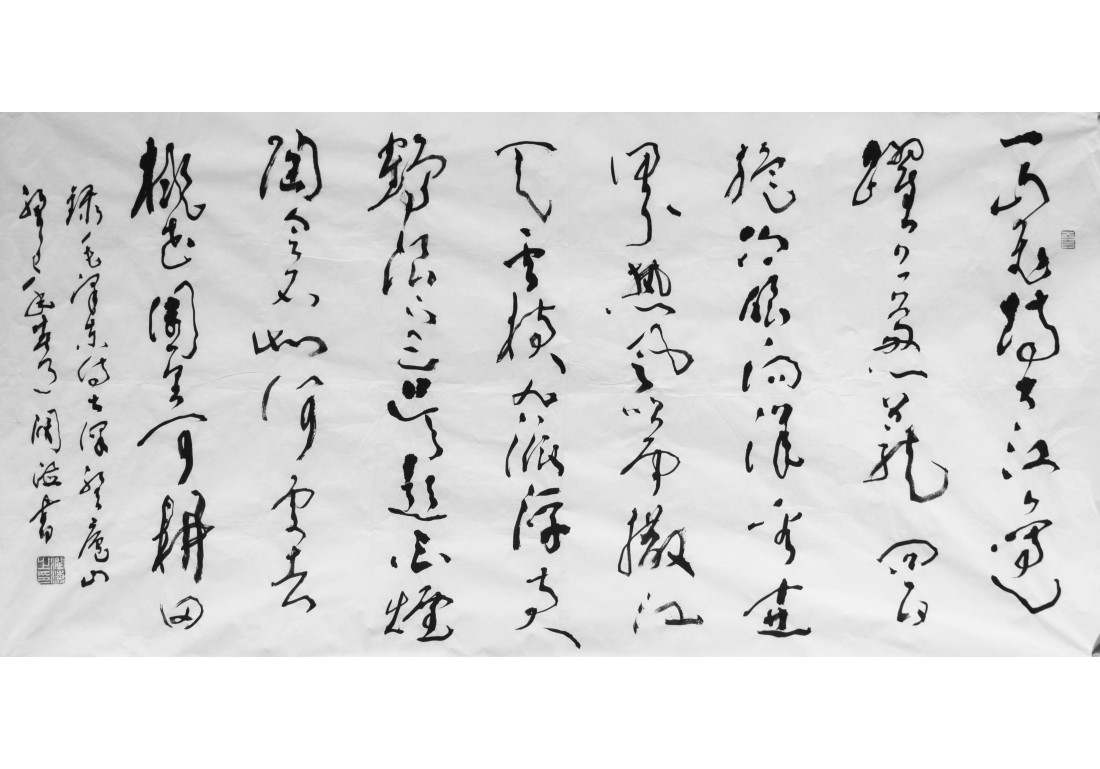 一山飞峙大江邊
躍上葱蘢四百
旋冷眼向洋看世
界热风吹雨撒江
天雲横九派浮黄
鶴浪下三吴起白煙
陶令不知何处去
桃花園里可耕田
録毛泽东诗七律登廬山
年春月 书